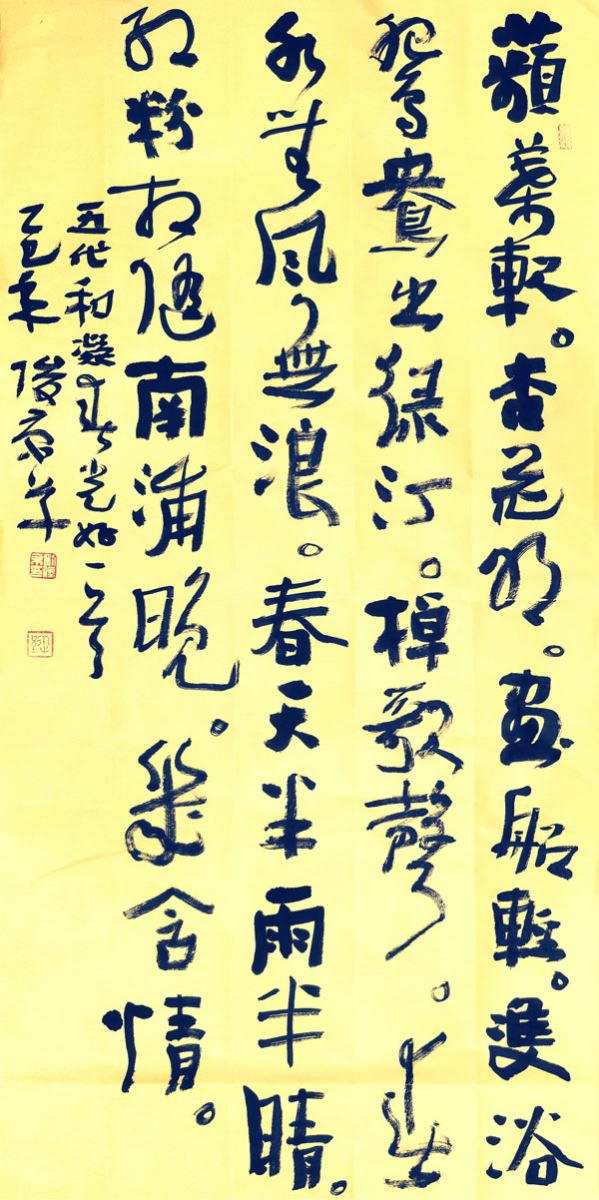 蘋葉軟。杏花明。畫船輕。雙浴
鴛鴦出緑汀。棹歌聲。春
水無風無浪。春天半雨半晴。
紅粉相隨南浦晚。幾含情。
五代和凝春光好一首
乙巳年 俊草